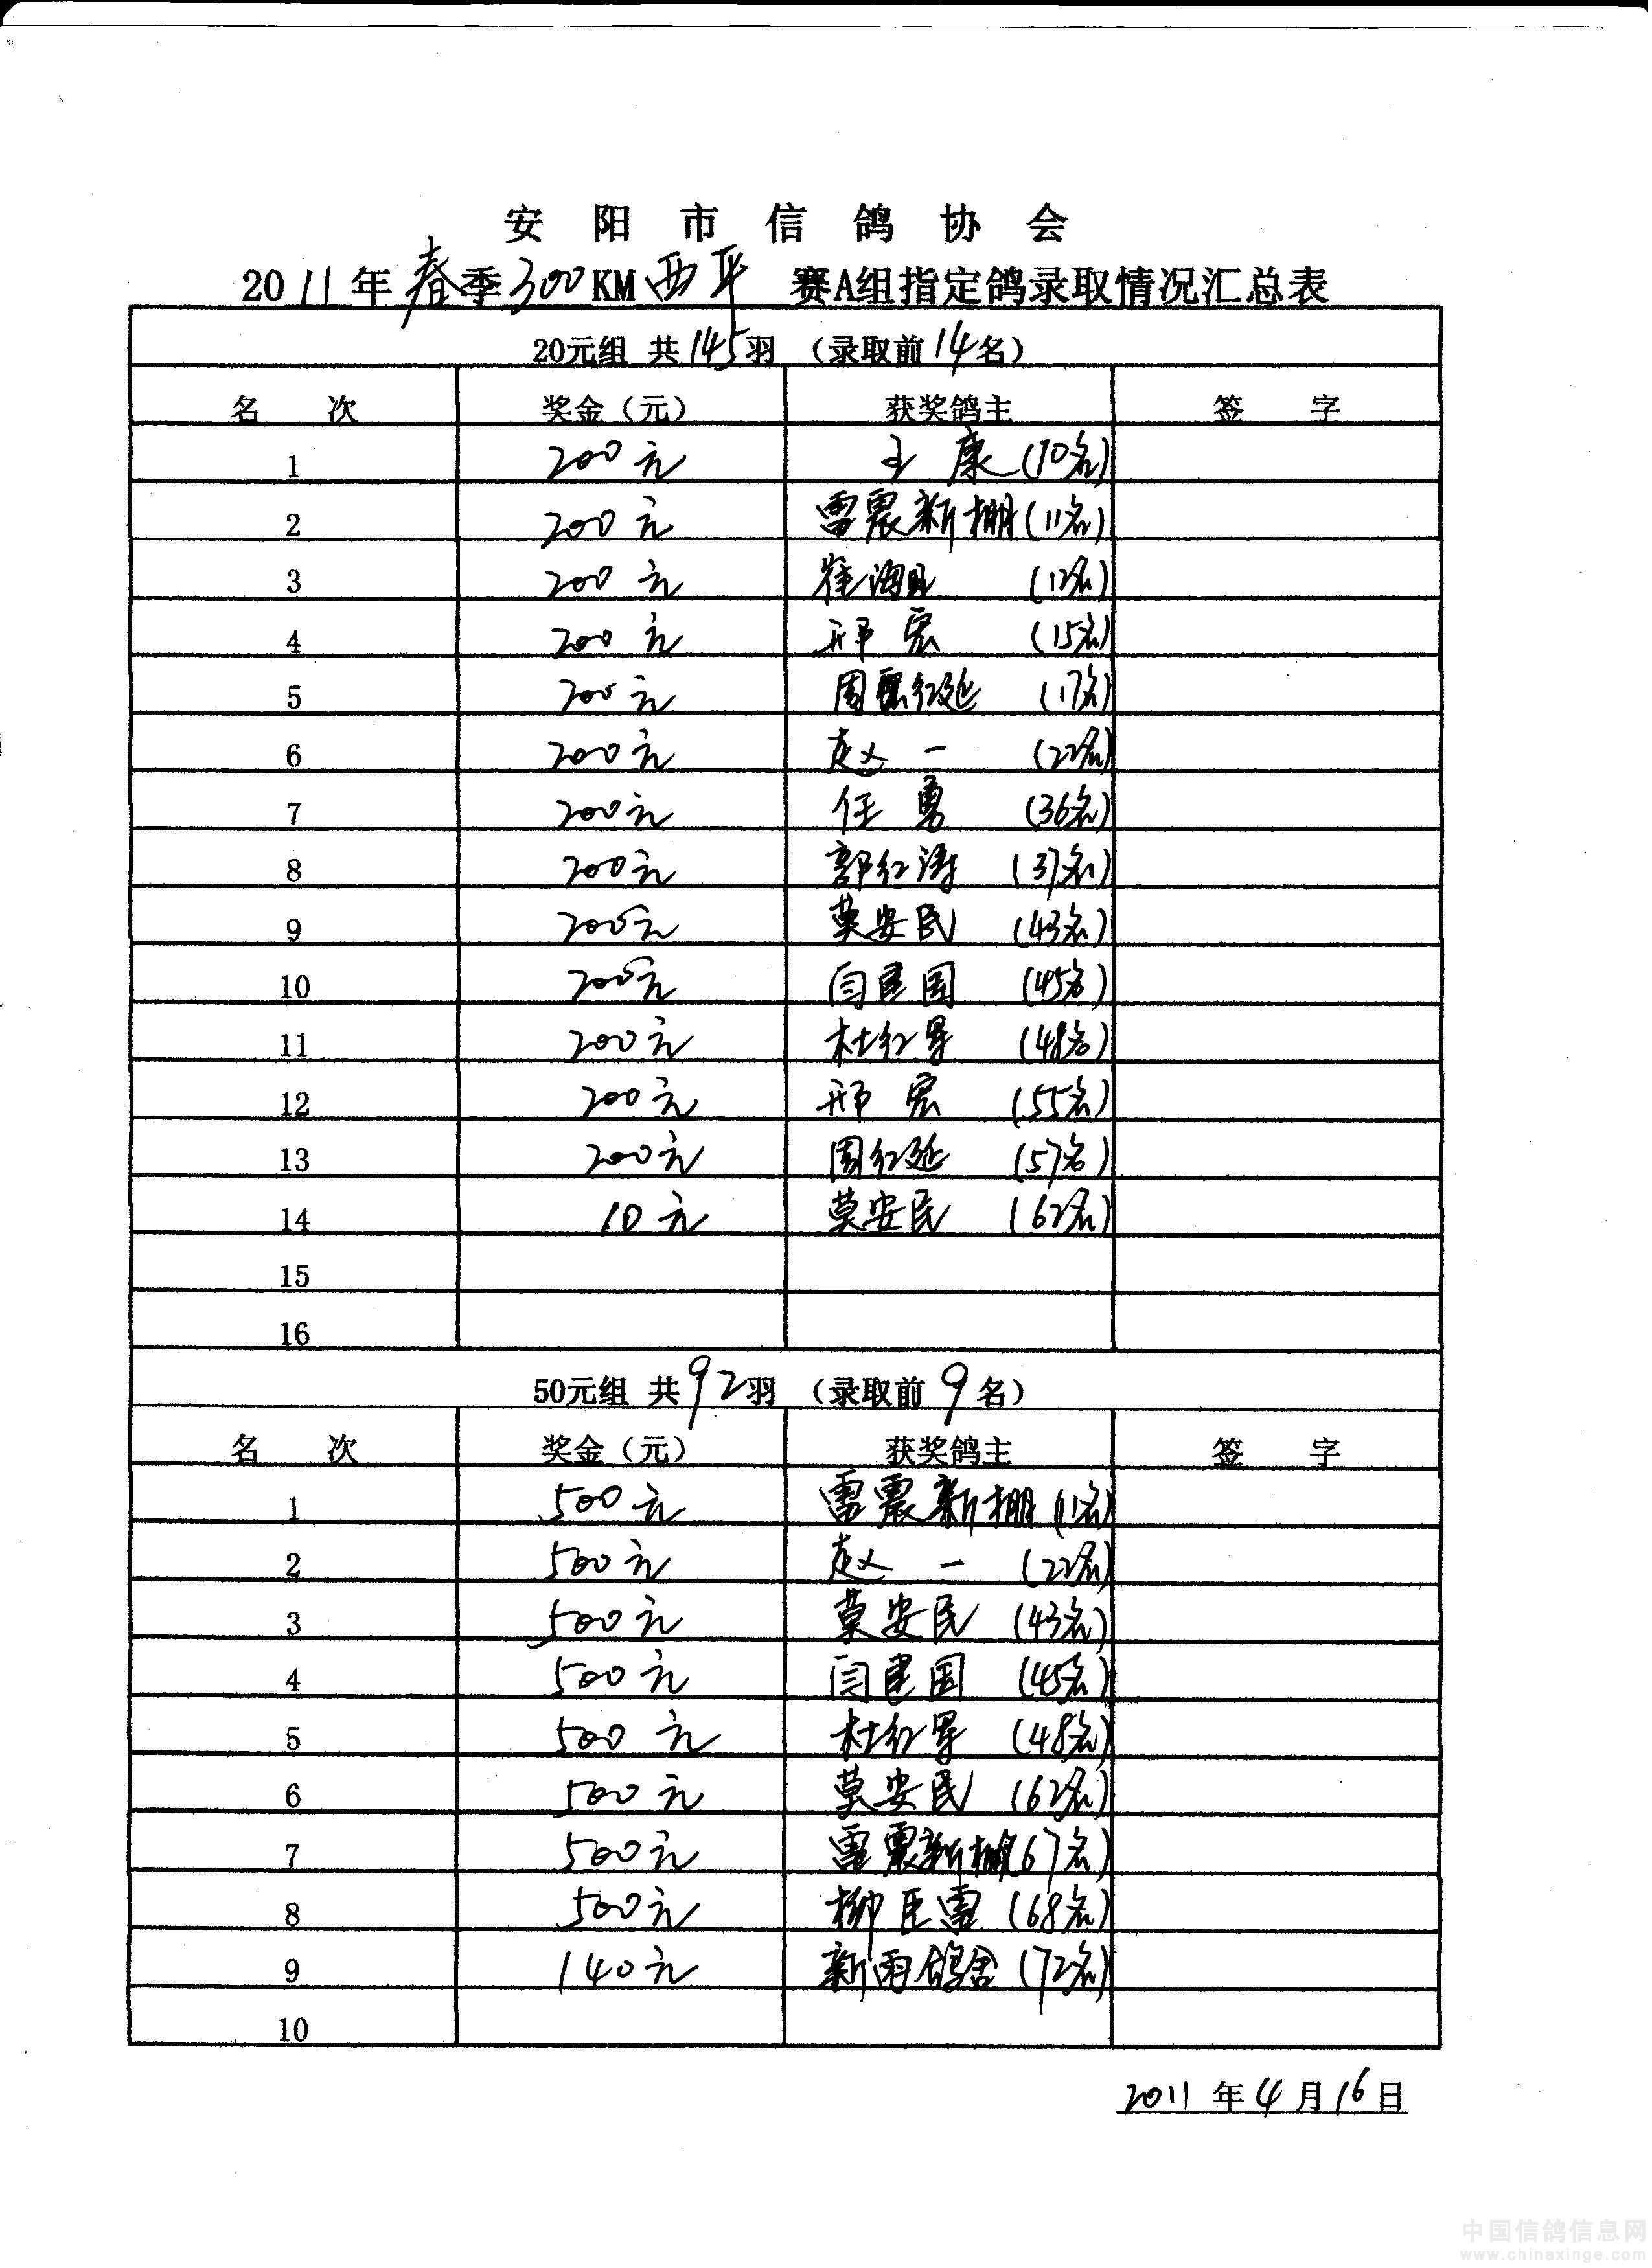 安阳市信鸽协会
2011年春季300KM西平 赛A组指定鸽录取情况汇总表
20元组 共145羽 （录取前14名）
名次 奖金（元） 获奖鸽主 签字
1 200元 王康(10名)
2 200元 雷震新棚(11名)
3 200元 崔海旺(12名)
4 200元 邢宏(15名)
5 200元 周红延(17名)
6 200元 赵一(22名)
7 200元 任勇(36名)
8 200元 郭红涛(37名)
9 200元 莫安民(43名)
10 200元 闫建国(45名)
11 200元 杜红军(48名)
12 200元 邢宏(55名)
13 200元 周红延(57名)
14 10元 莫安民(62名)
15
16
50元组 共92羽 （录取前9名）
名次 奖金（元） 获奖鸽主 签字
1 500元 雷震新棚(11名)
2 500元 赵一(22名)
3 500元 莫安民(43名)
4 500元 闫建国(45名)
5 500元 杜红军(48名)
6 500元 莫安民(62名)
7 500元 雷震新棚(67名)
8 500元 柳臣雷(68名)
9 140元 新雨鸽舍(72名)
10
2011年4月16日
中国信鸽信息网
www.chinaxinge.com